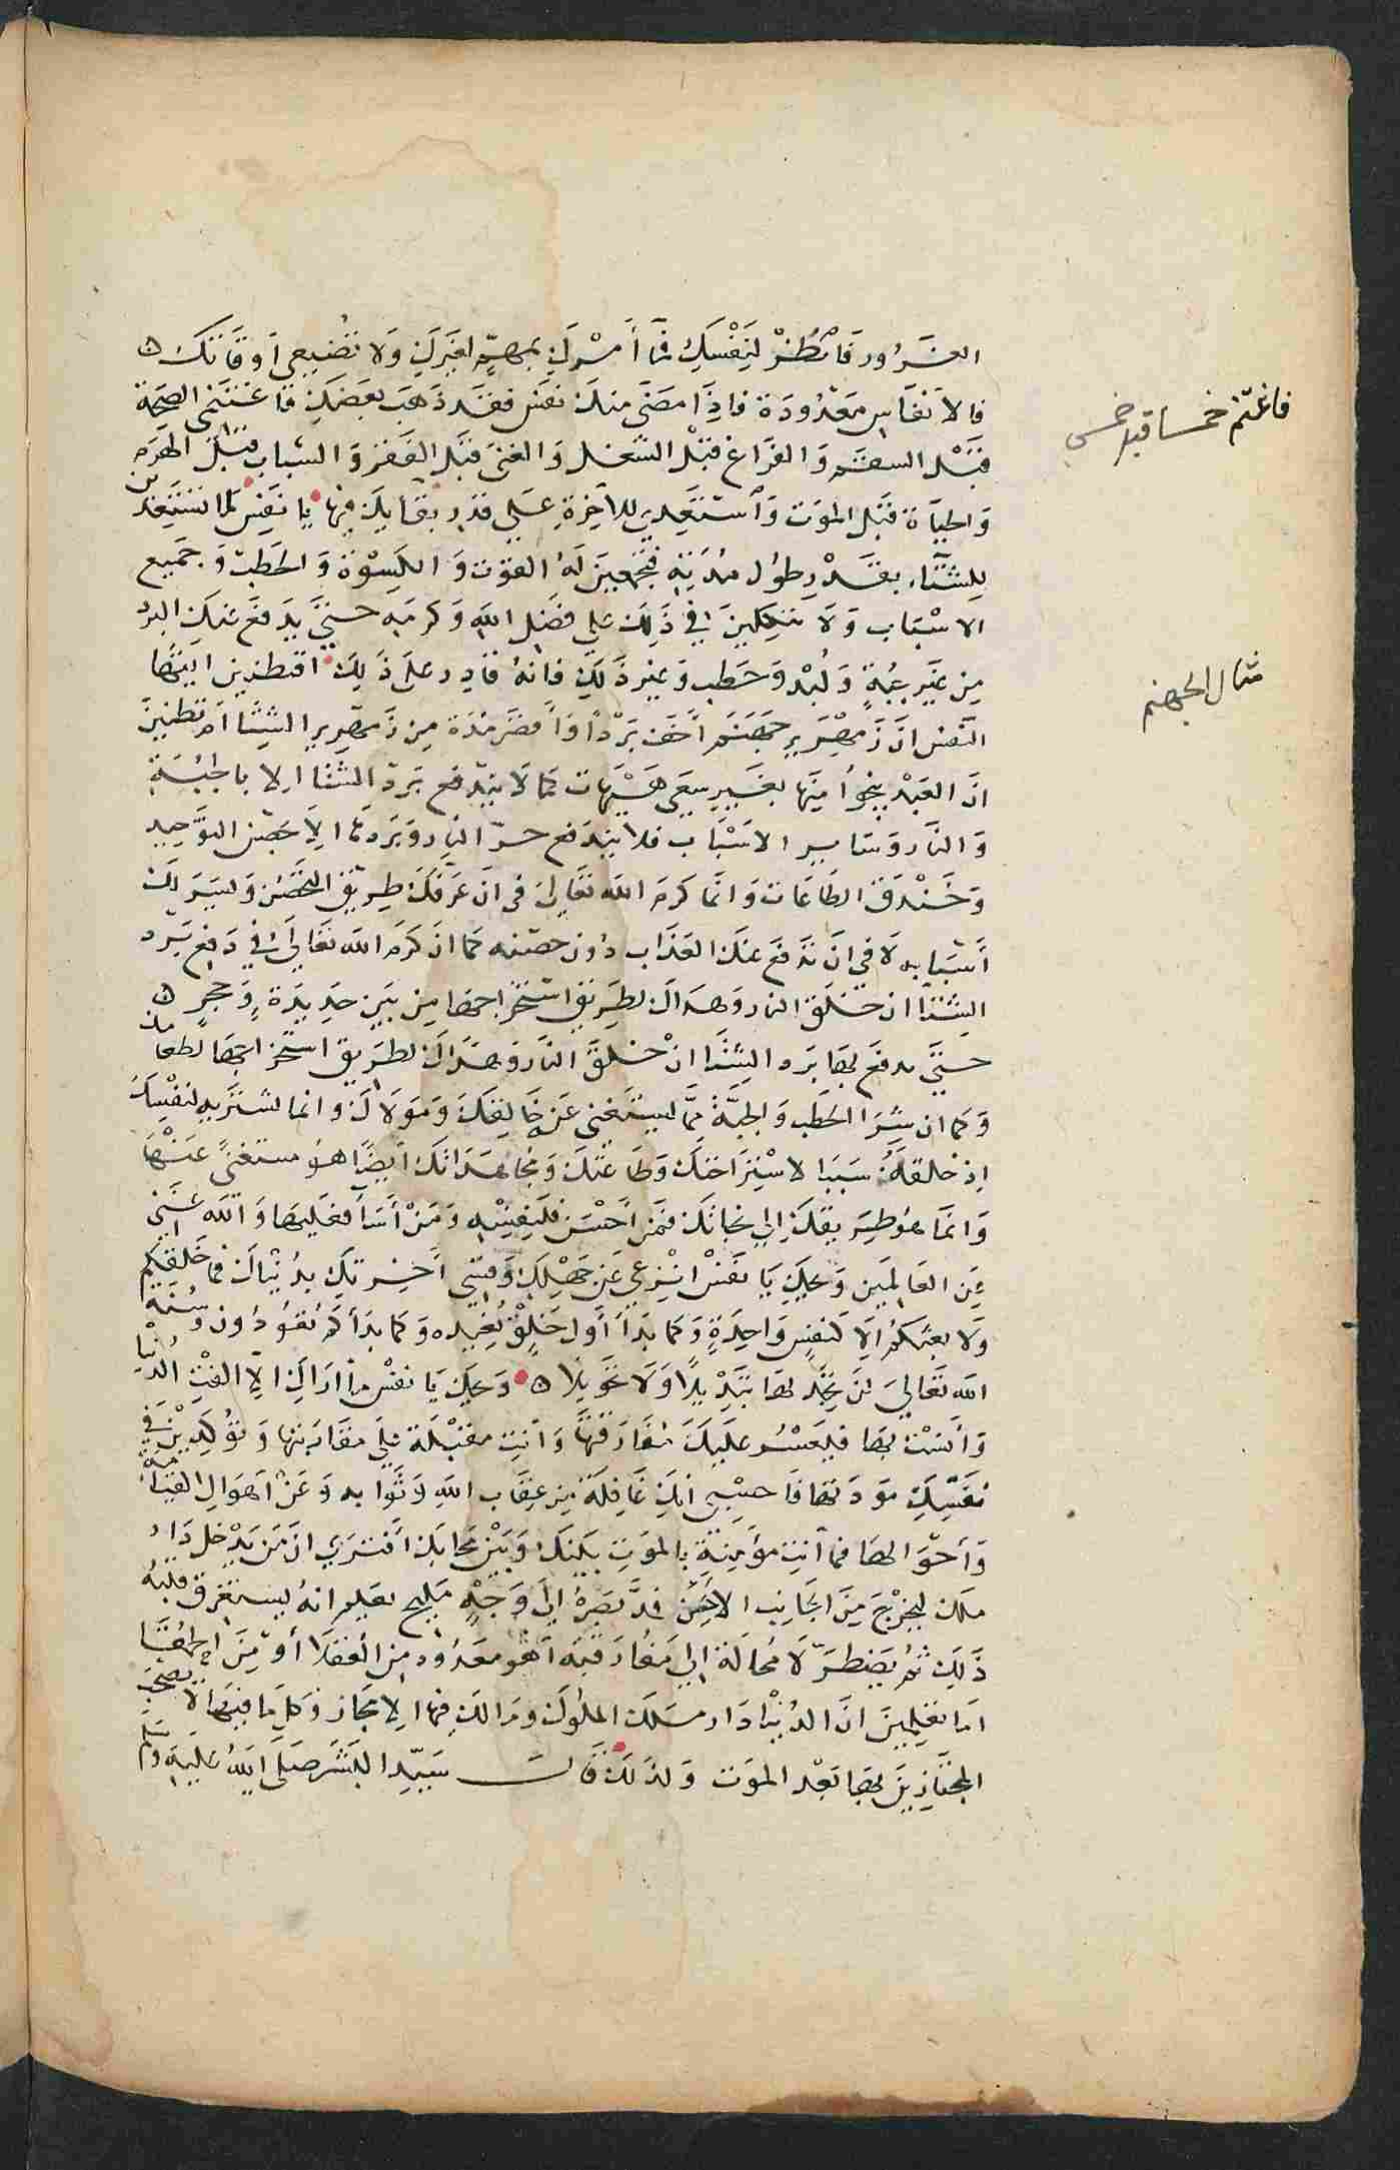 الغرور فانظر لنفسك فما أمرك بمهم لغيرك ولا تضيعي أوقاتك ه
فالانفاس معدودة فاذا مضى منك نفس فقد ذهب بعضك فاغتنمى الصحة
قبل السقم والفراغ قبل الشغل والغنى قبل الفقر والشباب قبل الهرم
والحياة قبل الموت واستعدي للآخرة على قدر بقايك فيها يا نفس كما تستعدين
للشتاء بقدر طول مدته فتجمعين له القوت والكسوة والحطب وجميع
الاسباب ولا تتكلين في ذلك على فضل الله وكرمه حتى يدفع عنك البرد
من غير جبة ولبد وحطب وغير ذلك فانه قادر على ذلك افتظنين ايتها
النفس ان زمهرير جهنم أخف بردا وأقصر مدة من زمهرير الشتا أم تظنين
ان العبد ينجوا منها بغير سعي هيهات كما لا يندفع برد الشتا الا بالجبة
والنار وساير الاسباب فلا يندفع حر النار وبردها الا بحصن التوحيد
وخندق الطاعات وانما كرم الله تعالى فى ان عرفك طريق التحصن ويسر لك
أسبابه لا في ان تدفع عنك العذاب دون حصنه كما ان كرم الله تعالى في دفع برد
الشتا ان خلق النار وهداك لطريق استخراجها من بين حديدة وحجر ه
حتى تدفع بها برد الشتا ان خلق النار وهداك لطريق استخراجها
وكما ان شرا الحطب والجبة مما يستغنى عنه خالقك ومولاك وانما تشتريه لنفسك
اذ خلقه سببا لاستراحتك وطاعتك ومجاهداتك أيضا هو مستغنى عنها
وانما هو طريقك الى نجاتك فمن احسن فلنفسه ومن أسأ فعليها والله غني
عن العالمين ويحك يا نفس انزعي عن جهلك وقيسي آخرتك بدنياك فما خلقكم
ولا بعثكم الا كنفس واحدة وكما بدأ أول خلق نعيده وكما بدأكم تعودون وسنة
الله تعالى لن تجد لها تبديلا ولا تحويلا ه ويحك يا نفس ما أراك الا الفت الدنيا
وأنست بها فيعسر عليك مفارقتها وانت مقبلة على مقاربتها وتؤكدين في
نفسك مودتها فاحسبي انك غافلة من عقاب الله وثوابه وعن أهوال القيامة
وأحوالها فما أنت مؤمنة بالموت بينك وبين محابك أفترى ان من يدخل دار
ملك ليخرج من الجانب الاخر فمد بصره الى وجه مليح يعلم انه يستغرق قلبه
ذلك ثم يضطر لا محالة الى مفارقته أهو معدود من العقلا أو من الحمقا
اما تعلمين ان الدنيا دار مسلك الملوك ومالك فيها الا مجاز وكل ما فيها لا يصحب
المجتازين بها بعد الموت ولذلك قال سيد البشر صلى الله عليه وسلم
فاغتنم خمسا قبل خمس
مثال الجهنم